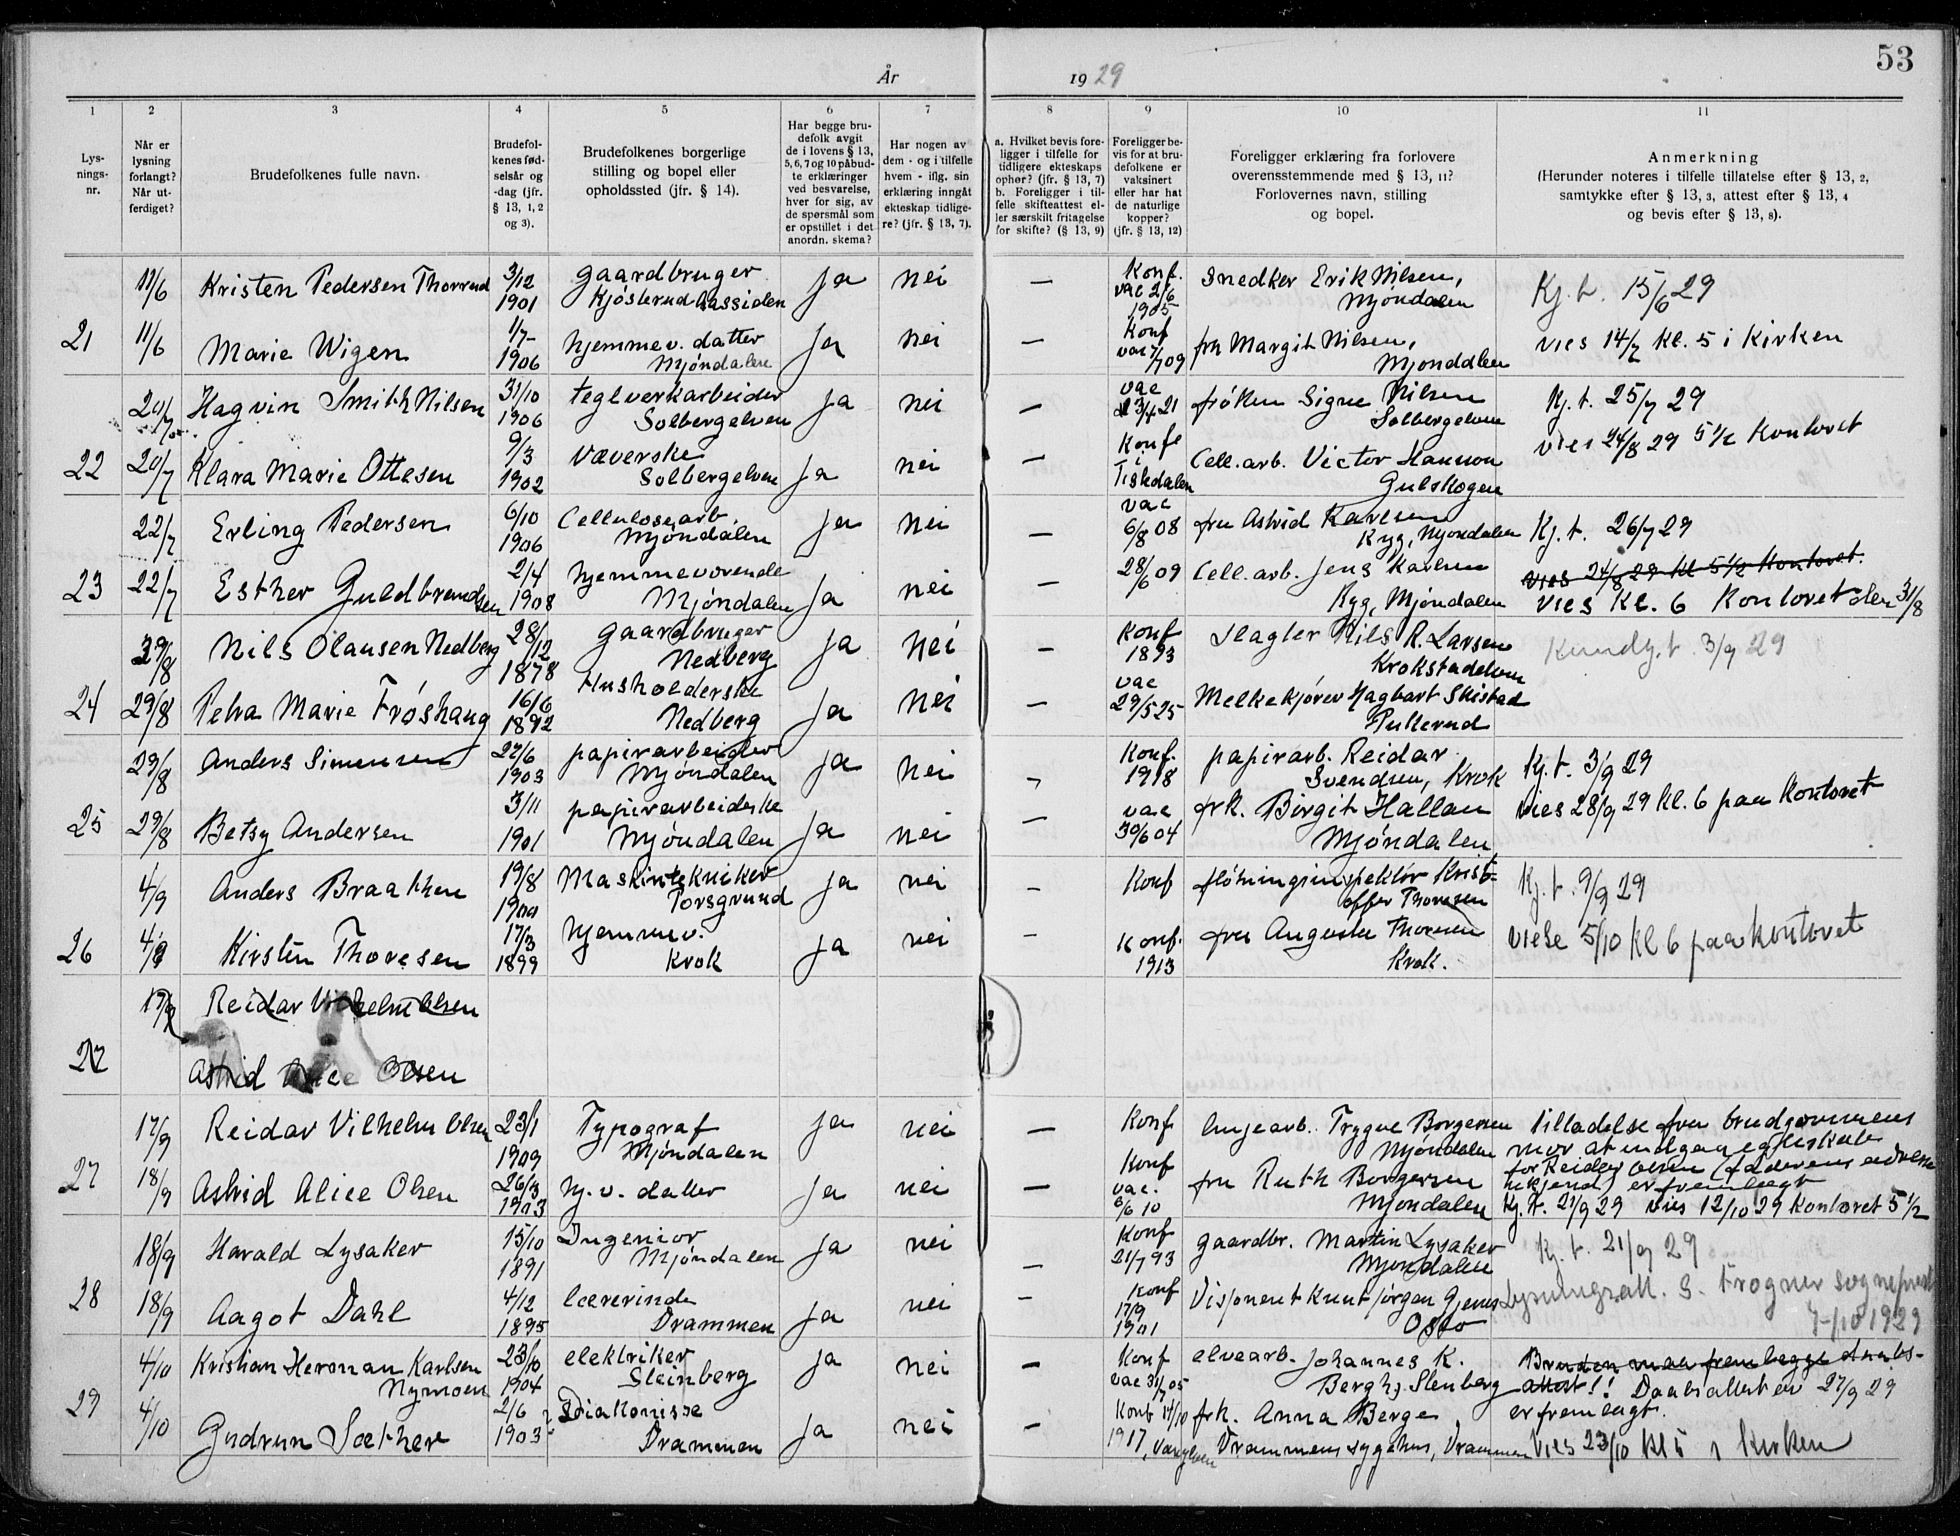 53
År 1929
1 2 3 4 5 6 7 8 9 10 11
Lys-
nings-
nr.
Når er
lysning
forlangt?
Når ut-
ferdiget?
Brudefolkenes fulle navn.
Brudefol-
kenes fød-
selsår og
-dag (jfr.
§ 13, 1, 2
og 3).
Brudefolkenes borgerlige
stilling og bopel eller
opholdssted (jfr. § 14).
Har begge bru-
defolk avgit
de i lovens § 13,
5, 6, 7 og 10 påbud-
te erklæringer
ved besvarelse,
hver for sig, av
de spørsmål som
er opstillet i det
anordn. skema?
Har nogen av
dem - og i tilfelle
hvem - iflg. sin
erklæring inngått
ekteskap tidlige-
re? (jfr. § 13, 7).
a. Hvilket bevis fore-
ligger i tilfelle for
tidligere ekteskaps
ophør? (jfr. § 13, 7)
b. Foreligger i til-
felle skifteattest el-
ler særskilt fritagelse
for skifte? (§ 13, 9)
Foreligger be-
vis for at bru-
defolkene er
vaksinert
eller har hat
de naturlige
kopper?
(jfr. § 13, 12)
Foreligger erklæring fra forlovere
overensstemmende med § 13, 11?
Forlovernes navn, stilling
og bopel.
Anmerkning
(Herunder noteres i tilfelle tillatelse efter § 13, 2,
samtykke efter § 13, 3, attest efter § 13, 4
og bevis efter § 13, 8).
11/6 Kristen Pedersen Thorrud 3/12 1901 gaardbruger Kjøsterud Aassiden Ja nei — Konf. vac 2/6 1905 Snedker Erik Nilsen, Mjøndalen Kj. t. 15/6 29
21 11/6 Marie Wigen 1/7- 1906 hjemmev. datter Mjøndalen Ja nei — Konf vac 7/7 09 fru Margit Nilsen, Mjøndalen vies 14/7 kl. 5 i Kirken
20/7 Hagvin Smith Nilsen 31/10 1906 teglverkarbeider Solbergelven Ja nei — vac 23/4 21 frøken Signe Nilsen Solbergelven Kj. t. 25/7 29
22 20/7 Klara Marie Ottesen 9/3 1902 Væverske Solbergelven Ja nei — Konfe i Tiskdalen Cell. arb. Victor Hansson Gulskogen vies 24/8 29 5½ Kontoret
22/7 Erling Pedersen 6/10 1906 Cellulosearb. Mjøndalen Ja nei — vac 6/8 08 fru Astrid Karlsen Ryg, Mjøndalen Kj. t. 26/7 29
23 22/7 Esther Guldbrandsen 2/4 1908 hjemmeværende Mjøndalen Ja nei — 28/6 09 Cell. arb. Jens Karlsen Ryg, Mjøndalen vies 24/8 29 kl 5½ Kontoret. vies Kl. 6 Kontoret den 31/8
29/8 Nils Olausen Nedberg 28/12 1878 gaardbruger Nedberg Ja nei — Konf 1893 Slagter Nils R. Larsen Krokstadelven Kundg. t. 3/9 29
24 29/8 Petra Marie Frøshaug 16/6 1892 Husholderske Nedberg Ja nei — vac 29/5 25 Melkekjører Hagbart Skistad Pukerud
29/8 Anders Simensen 27/6 1903 papirarbeider Mjøndalen Ja nei — Konf. 1918 papirarb. Reidar Svendsen, Krok Kj. t. 3/9 29
25 29/8 Betsy Andersen 3/11 1901 papirarbeiderske Mjøndalen Ja nei — vac 30/6 04 frk. Birgit Hallan Mjøndalen vies 28/9 29 kl. 6 paa Kontoret
4/9 Anders Braathen 19/8 1900 Maskintekniker Porsgrund Ja nei — Konf fløtningsinspektør Kristoffer Thoresen Kj. t. 9/9 29
26 4/9 Kirsten Thoresen 17/3 1899 hjemmev. Krok Ja nei — Konf. 1913 fru Augusta Thoresen Krok. Viese 5/10 Kl 6 paa Kontoret
17/9 Reidar Vilhelm Olsen
27 Astrid Alice Olsen
17/9 Reidar Vilhelm Olsen 23/1 1909 Typograf Mjøndalen Ja nei — Konf linjearb. Trygve Borgersen Mjøndalen Tilladelse fra brudgommens mor at indgaa egteskab
27 18/9 Astrid Alice Olsen 26/3 1903 hj. v. datter Ja nei — Konf vac. 6/6 10 fru Ruth Borgersen Mjøndalen for Reidar Olsen (faderens adresse ukjend) er fremlagt Kj. t. 21/9 29 vies 12/10 29 Kontoret 5½
18/9 Harald Lysaker 15/10 1891 Ingeniør Mjøndalen Ja nei — Konf 21/7 93 gaardbr. Martin Lysaker Mjøndalen Kj. t. 21/9 29
28 18/9 Aagot Dahl 4/12 1895 lærerinde Drammen Ja nei — Konf 17/9 1901 Disponent Knut Jørgen Oslo Lysningsatt. s. Frogner sogneprest 7-/10 1929
4/10 Kristian Herman Karlsen Nymoen 23/10 1904 elektriker Steinberg Ja nei — Konf vac 31/7 05 elvearb. Johannes K. Berg hj. Stenberg Bruden maa fremlegge daabs-attest!! Daabsattest er 27/9 29
29 4/10 Gudrun Sæther 2/6 1903 Diakonisse Drammen Ja nei — Konf 14/10 1917, frk. Anna Berge, Drammens sygehus, Drammen er fremlagt. Vies 23/10 Kl 5 i Kirken